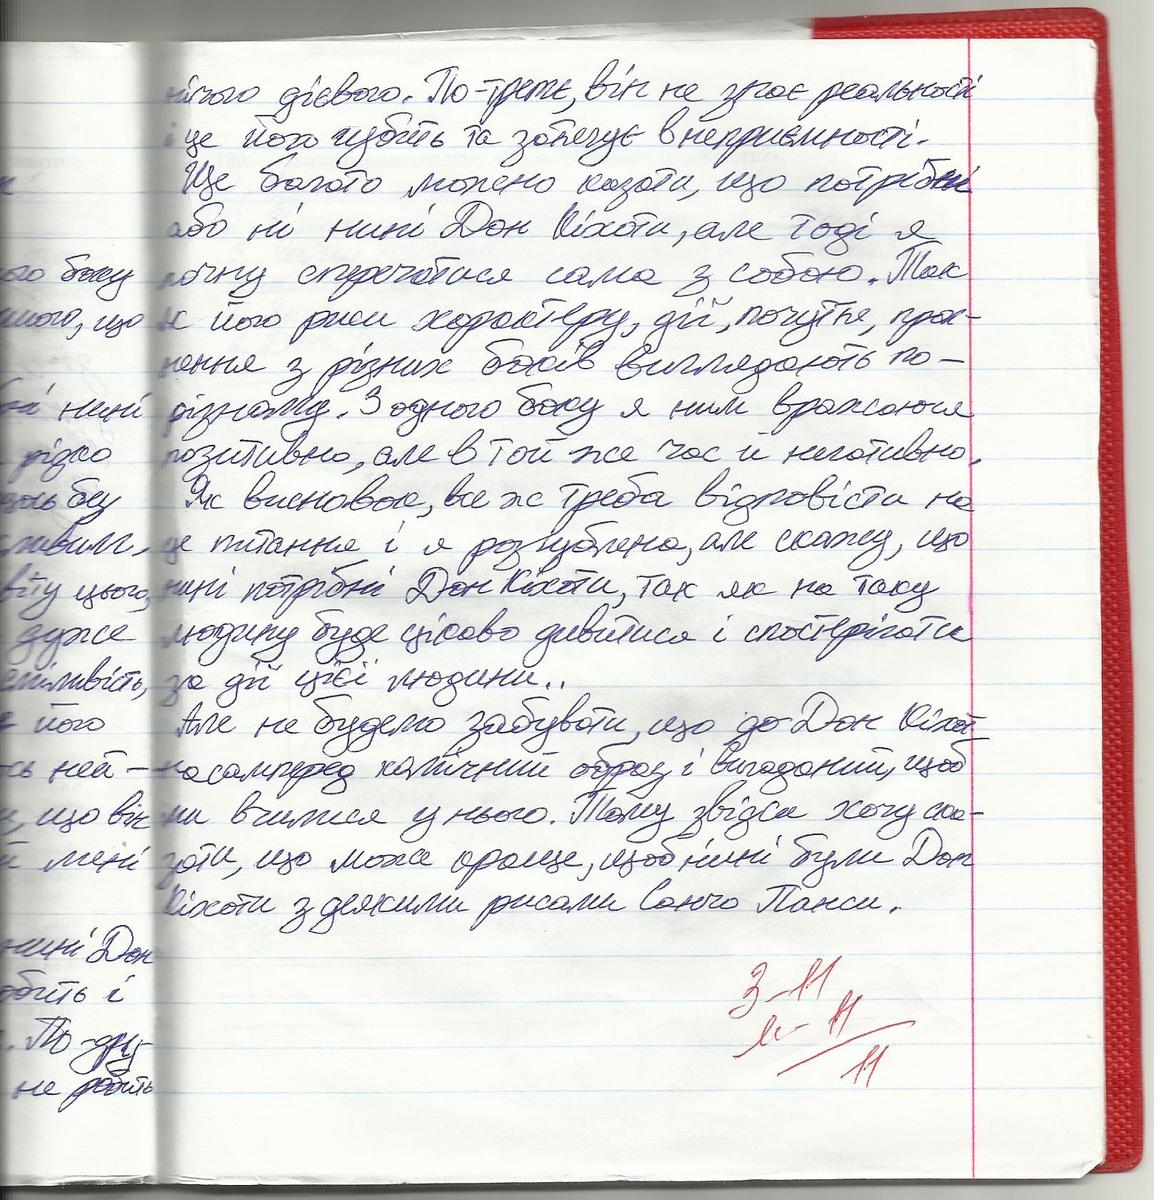 ого боку
що
нині
різко
бу
цього,
дуже
його
ней-
, що він
мені
нині Дон
робить і
. По-дру-
не робить
нічого дієвого. По-третє, він не знає реальності
і це його губить та затягує в неприємності.
Ще багато можно казати, що потрібні
або ні нині Дон Кіхоти, але тоді я
почну сперечатися сама з собою. Так
як його риси характеру, дії, почуття, праг-
нення з різних боків виглядають по-
різному. З одного боку я ним вражаюся
позитивно, але в той же час й негативно.
Як висновок, все ж треба відповісти на
це питання і я розгублена, але скажу, що
нині потрібні Дон Кіхоти, так як на таку
людину буде цікаво дивитися і спостерігати
за дії цієї людини..
Але не будемо забувати, що до Дон Кіхот
насамперед комічний образ і вигаданий, щоб
ми вчилися у нього. Тому звідси хочу ска-
зати, що може краще, щоб нині були Дон
Кіхоти з деякими рисами Санчо Панси.
З-11
11
11